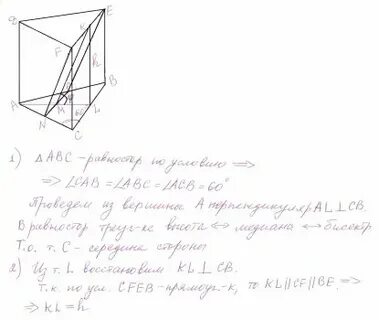 D
E
F
K
h
A
B
M
L
N
60
C
1) △ABC – равностор по условию ⟹
⟹ ∠CAB = ∠ABC = ∠ACB = 60°
Проведем из вершины A перпендикуляр AL ⊥ CB.
В равностор треуг-ке высота ↔ медиана ↔ бисектр
Т.о. т. C – середина стороны
2) Из т. L восстановим KL ⊥ CB.
Т.к. по усл. CFEB – прямоуг-к, то KL ∥ CF ∥ BE, ⟹
⟹ KL = h